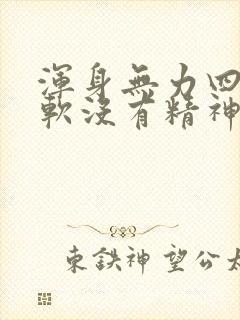 渾身無力四
軟沒有精神
東鉄神 望公太